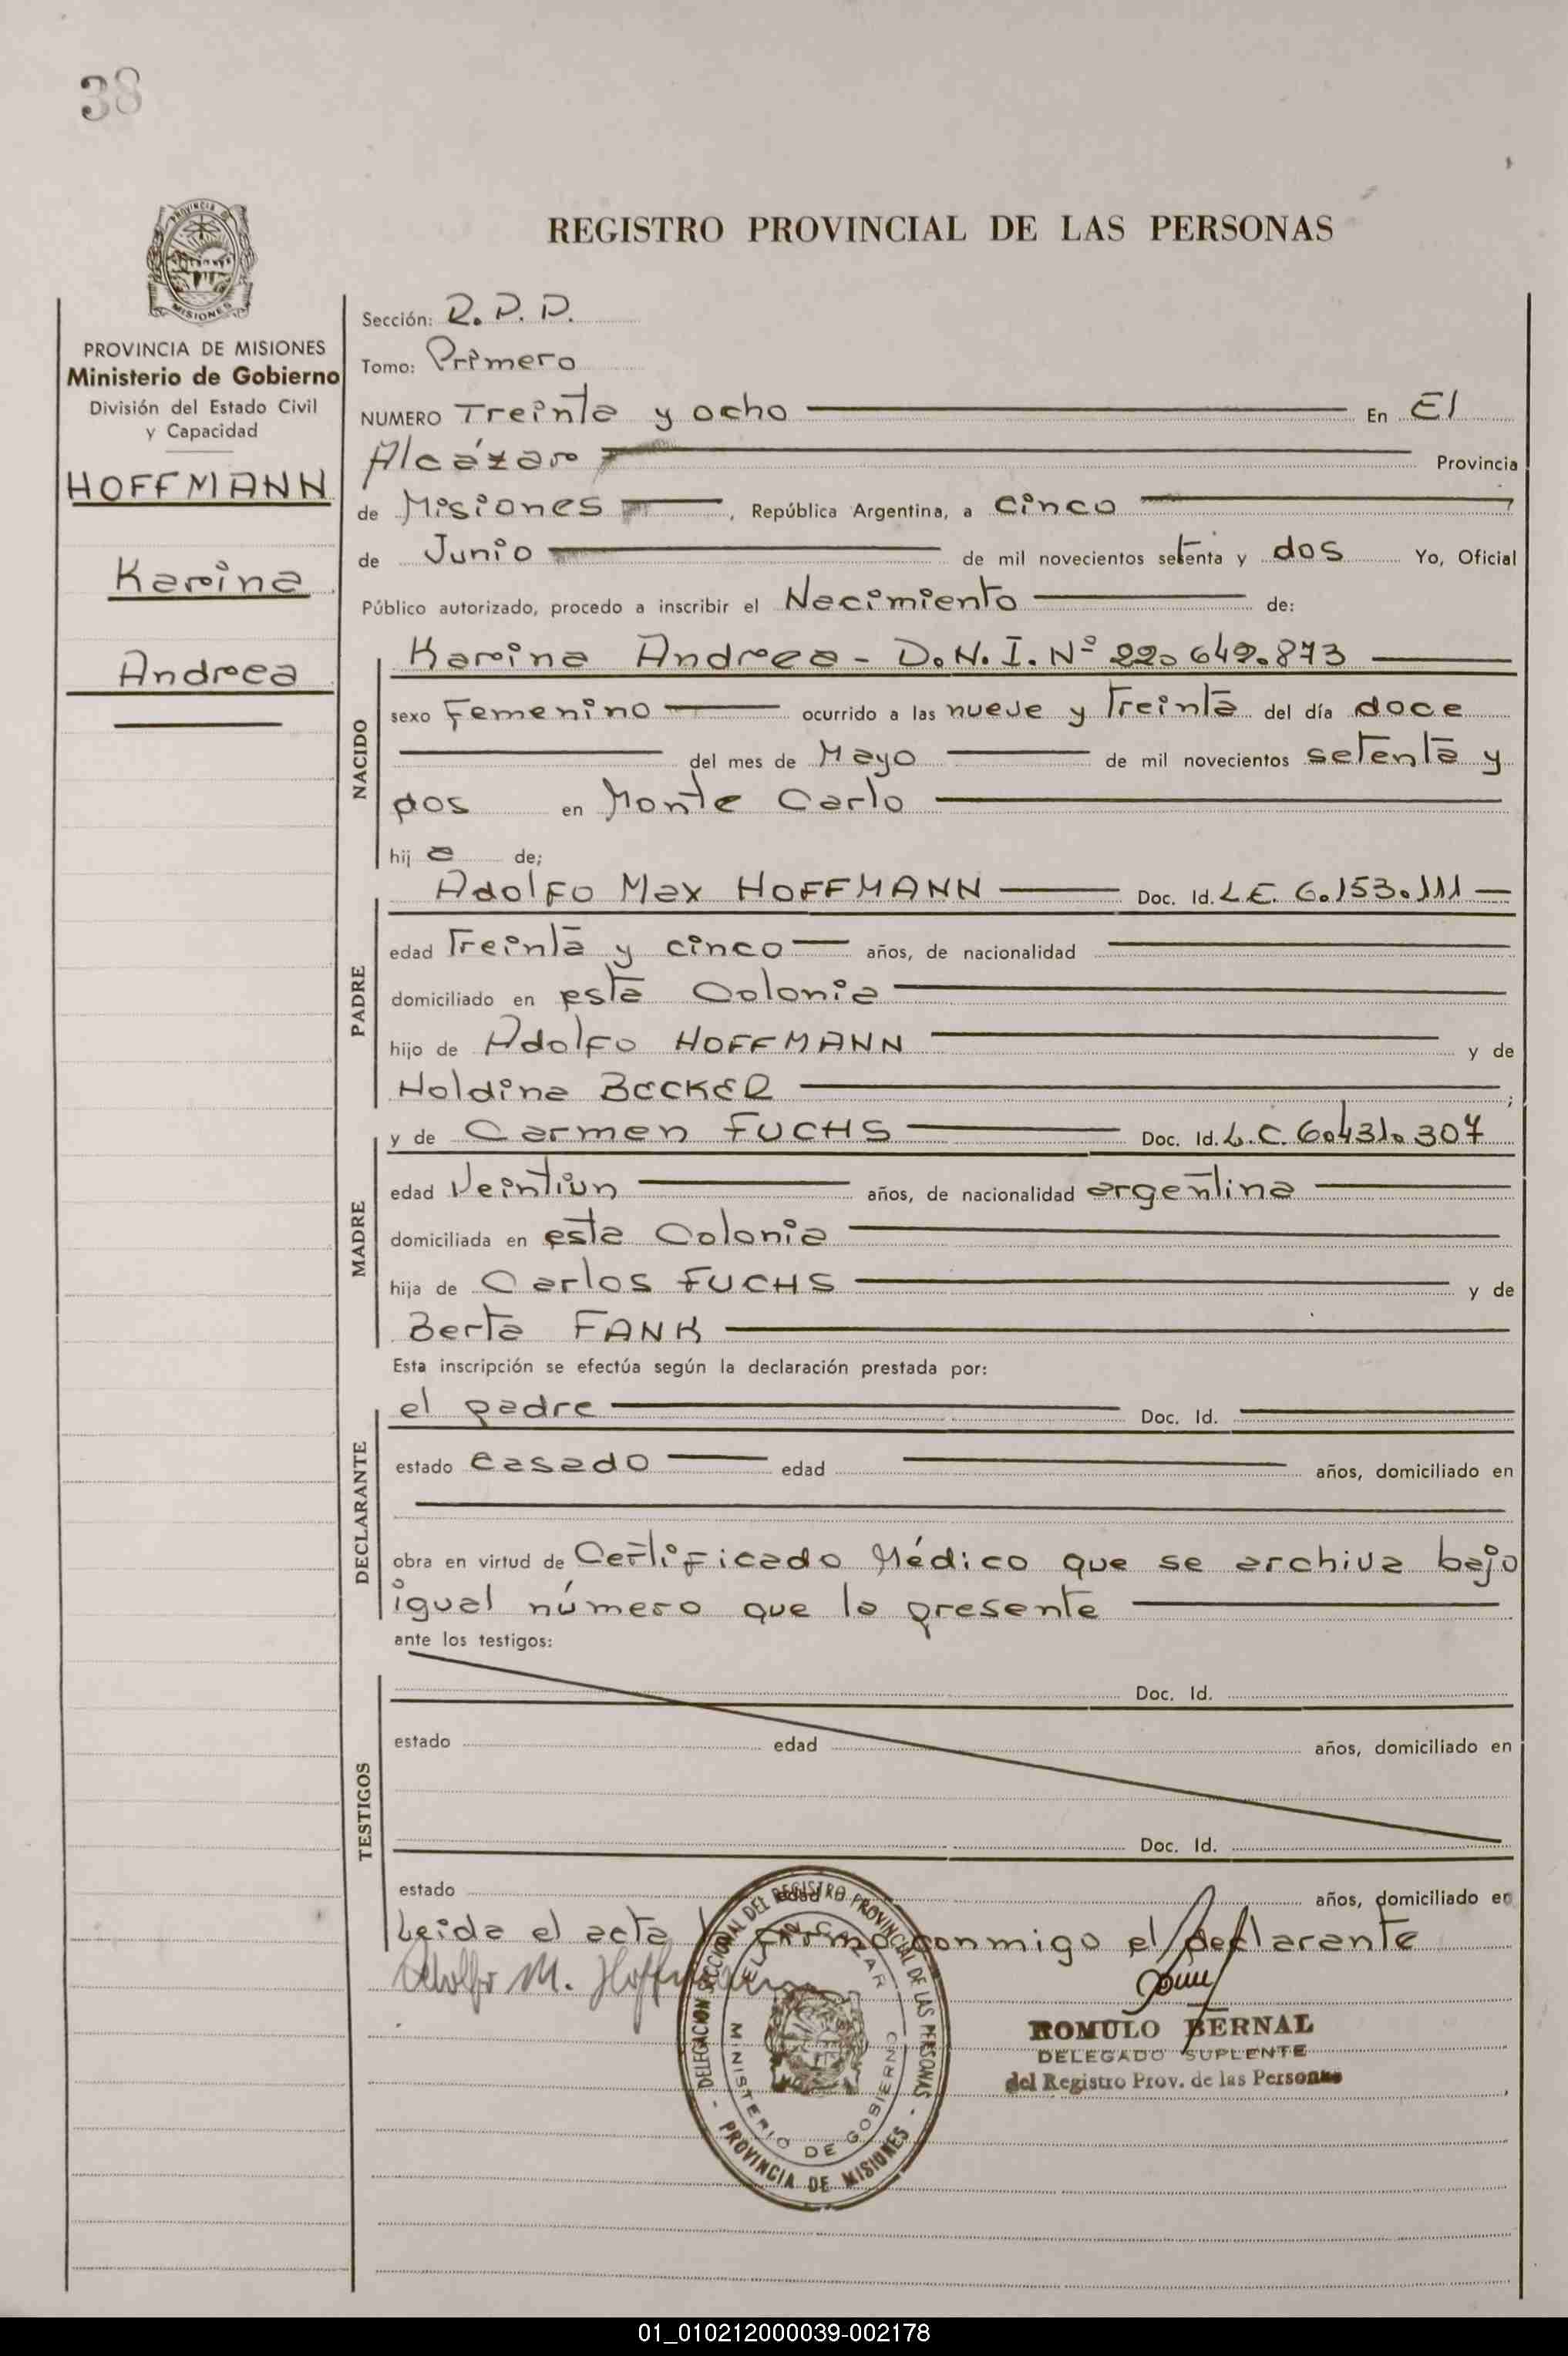 38
PROVINCIA DE
MISIONES
REGISTRO PROVINCIAL DE LAS PERSONAS
PROVINCIA DE MISIONES
Ministerio de Gobierno
División del Estado Civil
y Capacidad
HOFFMANN
Karina
Andrea
Sección: R. P. P.
Tomo: Primero
NUMERO Treinta y ocho En El
Alcázar Provincia
de Misiones, República Argentina, a cinco
de Junio de mil novecientos setenta y dos Yo, Oficial
Público autorizado, procedo a inscribir el Nacimiento de:
NACIDO
Karina Andrea - D.N.I. Nº 22.649.873
sexo Femenino ocurrido a las nueve y Treinta del día doce
del mes de Mayo de mil novecientos setenta y
dos en Monte Carlo
hij a de;
PADRE
Adolfo Max HOFFMANN Doc. Id. L.E. 6.153.111
edad Treinta y cinco años, de nacionalidad
domiciliado en esta Colonia
hijo de Adolfo HOFFMANN y de
Holdina BECKER ;
MADRE
y de Carmen FUCHS Doc. Id. L.C. 6.431.307
edad Veintiun años, de nacionalidad argentina
domiciliada en esta Colonia
hija de Carlos FUCHS y de
Berta FANK
Esta inscripción se efectúa según la declaración prestada por:
DECLARANTE
el padre Doc. Id.
estado casado edad años, domiciliado en
obra en virtud de Certificado Médico que se archiva bajo
igual número que la presente
ante los testigos:
TESTIGOS
Doc. Id.
estado edad años, domiciliado en
Doc. Id.
estado edad años, domiciliado en
Leida el acta firma conmigo el declarante
Adolfo M. Hoffmann
ROMULO BERNAL
DELEGADO SUPLENTE
del Registro Prov. de las Personas
DELEGACION SECCIONAL DEL REGISTRO PROVINCIAL DE LAS PERSONAS
- PROVINCIA DE MISIONES -
EL ALCAZAR
MINISTERIO DE GOBIERNO
01_010212000039-002178